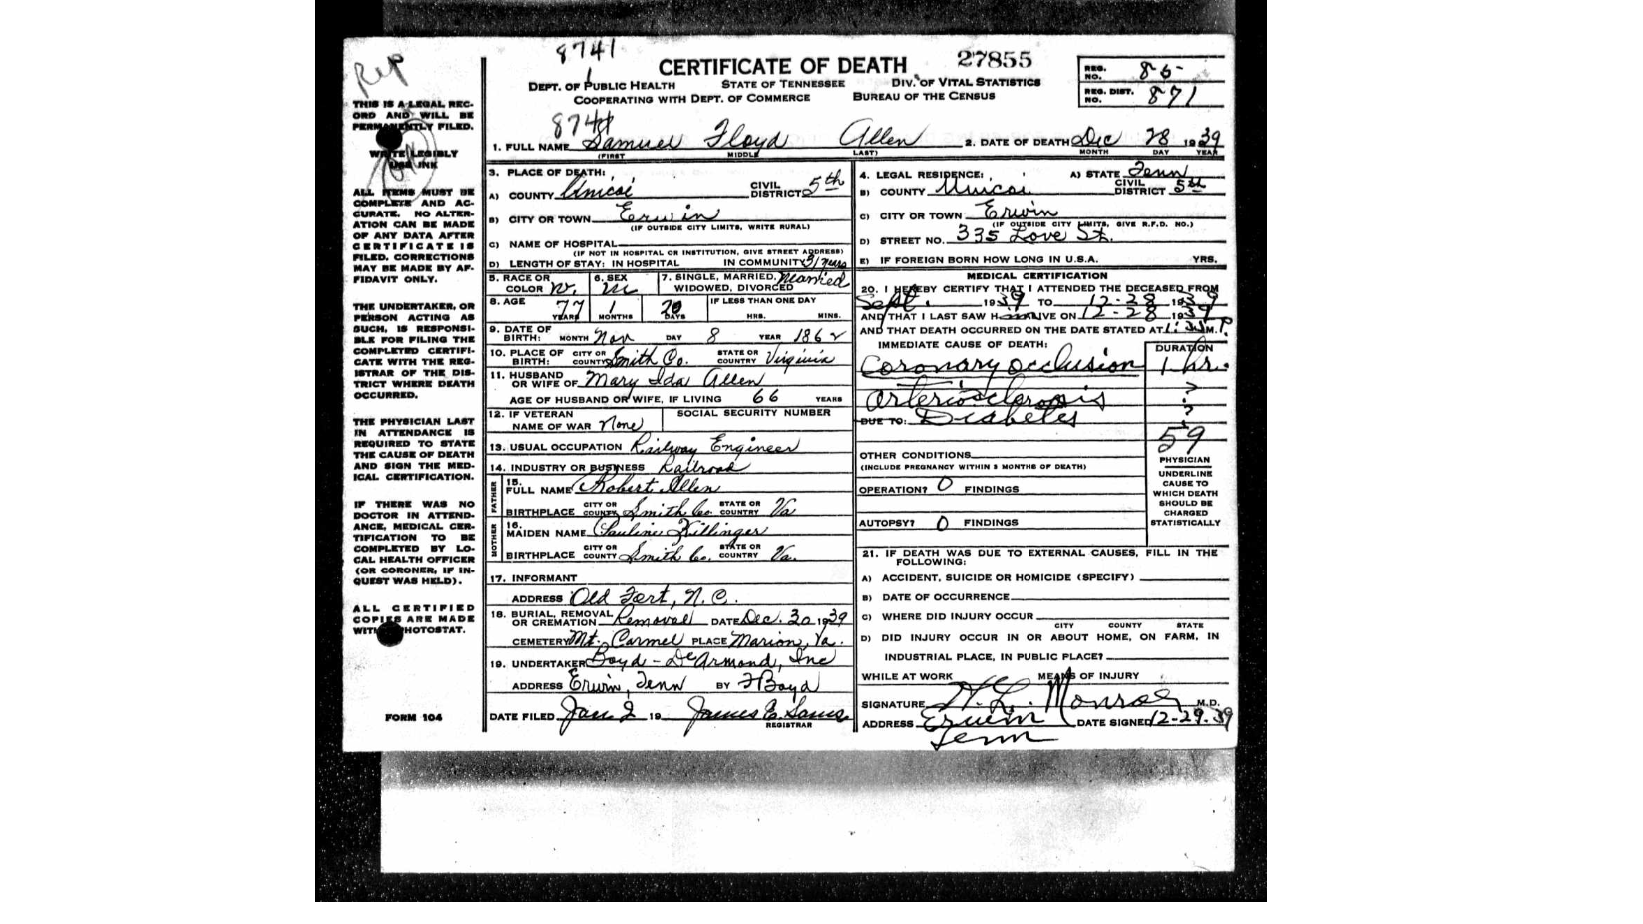 8741
1
CERTIFICATE OF DEATH
27855
DEPT. OF PUBLIC HEALTH STATE OF TENNESSEE DIV. OF VITAL STATISTICS
COOPERATING WITH DEPT. OF COMMERCE BUREAU OF THE CENSUS
REG. NO. 85
REG. DIST. NO. 871
THIS IS A LEGAL REC-
ORD AND WILL BE
PERMANENTLY FILED.
WRITE LEGIBLY
USE INK
ALL ITEMS MUST BE
COMPLETE AND AC-
CURATE. NO ALTER-
ATION CAN BE MADE
OF ANY DATA AFTER
CERTIFICATE IS
FILED. CORRECTIONS
MAY BE MADE BY AF-
FIDAVIT ONLY.
THE UNDERTAKER, OR
PERSON ACTING AS
SUCH, IS RESPONSI-
BLE FOR FILING THE
COMPLETED CERTIFI-
CATE WITH THE REG-
ISTRAR OF THE DIS-
TRICT WHERE DEATH
OCCURRED.
THE PHYSICIAN LAST
IN ATTENDANCE IS
REQUIRED TO STATE
THE CAUSE OF DEATH
AND SIGN THE MED-
ICAL CERTIFICATION.
IF THERE WAS NO
DOCTOR IN ATTEND-
ANCE, MEDICAL CER-
TIFICATION TO BE
COMPLETED BY LO-
CAL HEALTH OFFICER
(OR CORONER, IF IN-
QUEST WAS HELD).
ALL CERTIFIED
COPIES ARE MADE
WITH PHOTOSTAT.
FORM 104
8741
1. FULL NAME Samuel Floyd Allen 2. DATE OF DEATH Dec 28 1939
(FIRST MIDDLE LAST) MONTH DAY YEAR
3. PLACE OF DEATH:
A) COUNTY Unicoi CIVIL DISTRICT 5th
B) CITY OR TOWN Erwin
(IF OUTSIDE CITY LIMITS, WRITE RURAL)
C) NAME OF HOSPITAL
(IF NOT IN HOSPITAL OR INSTITUTION, GIVE STREET ADDRESS)
D) LENGTH OF STAY: IN HOSPITAL IN COMMUNITY 31 years
5. RACE OR COLOR W. 6. SEX M 7. SINGLE, MARRIED, WIDOWED, DIVORCED Married
8. AGE 77 YEARS 1 MONTHS 20 DAYS IF LESS THAN ONE DAY HRS. MINS.
9. DATE OF BIRTH: MONTH Nov DAY 8 YEAR 1862
10. PLACE OF BIRTH: CITY OR COUNTY Smith Co. STATE OR COUNTRY Virginia
11. HUSBAND OR WIFE OF Mary Ida Allen
AGE OF HUSBAND OR WIFE, IF LIVING 66 YEARS
12. IF VETERAN NAME OF WAR None SOCIAL SECURITY NUMBER
13. USUAL OCCUPATION Railway Engineer
14. INDUSTRY OR BUSINESS Railroad
FATHER
15. FULL NAME Robert Allen
BIRTHPLACE CITY OR COUNTY Smith Co. STATE OR COUNTRY Va
MOTHER
16. MAIDEN NAME Pauline Killinger
BIRTHPLACE CITY OR COUNTY Smith Co. STATE OR COUNTRY Va.
17. INFORMANT
ADDRESS Old Fort, N.C.
18. BURIAL, REMOVAL OR CREMATION Removal DATE Dec. 30 1939
CEMETERY Mt. Carmel PLACE Marion, Va.
19. UNDERTAKER Boyd - DeArmond, Inc
ADDRESS Erwin, Tenn BY F Boyd
DATE FILED Jan 2 19 James E. Sams
REGISTRAR
4. LEGAL RESIDENCE: A) STATE Tenn
B) COUNTY Unicoi CIVIL DISTRICT 5th
C) CITY OR TOWN Erwin
(IF OUTSIDE CITY LIMITS, GIVE R.F.D. NO.)
D) STREET NO. 335 Love St.
E) IF FOREIGN BORN HOW LONG IN U.S.A. YRS.
MEDICAL CERTIFICATION
20. I HEREBY CERTIFY THAT I ATTENDED THE DECEASED FROM
Sept. 1939 TO 12-28 1939
AND THAT I LAST SAW HIM ALIVE ON 12-28 1939
AND THAT DEATH OCCURRED ON THE DATE STATED AT M. P
IMMEDIATE CAUSE OF DEATH: DURATION
Coronary occlusion 1 hr.
Arteriosclerosis ?
DUE TO: Diabetes ?
59
OTHER CONDITIONS
(INCLUDE PREGNANCY WITHIN 3 MONTHS OF DEATH)
OPERATION? 0 FINDINGS
AUTOPSY? 0 FINDINGS
PHYSICIAN
UNDERLINE
CAUSE TO
WHICH DEATH
SHOULD BE
CHARGED
STATISTICALLY
21. IF DEATH WAS DUE TO EXTERNAL CAUSES, FILL IN THE
FOLLOWING:
A) ACCIDENT, SUICIDE OR HOMICIDE (SPECIFY)
B) DATE OF OCCURRENCE
C) WHERE DID INJURY OCCUR
CITY COUNTY STATE
D) DID INJURY OCCUR IN OR ABOUT HOME, ON FARM, IN
INDUSTRIAL PLACE, IN PUBLIC PLACE?
WHILE AT WORK MEANS OF INJURY
SIGNATURE H. L. Monroe M.D.
ADDRESS Erwin DATE SIGNED 12-29-39
Tenn